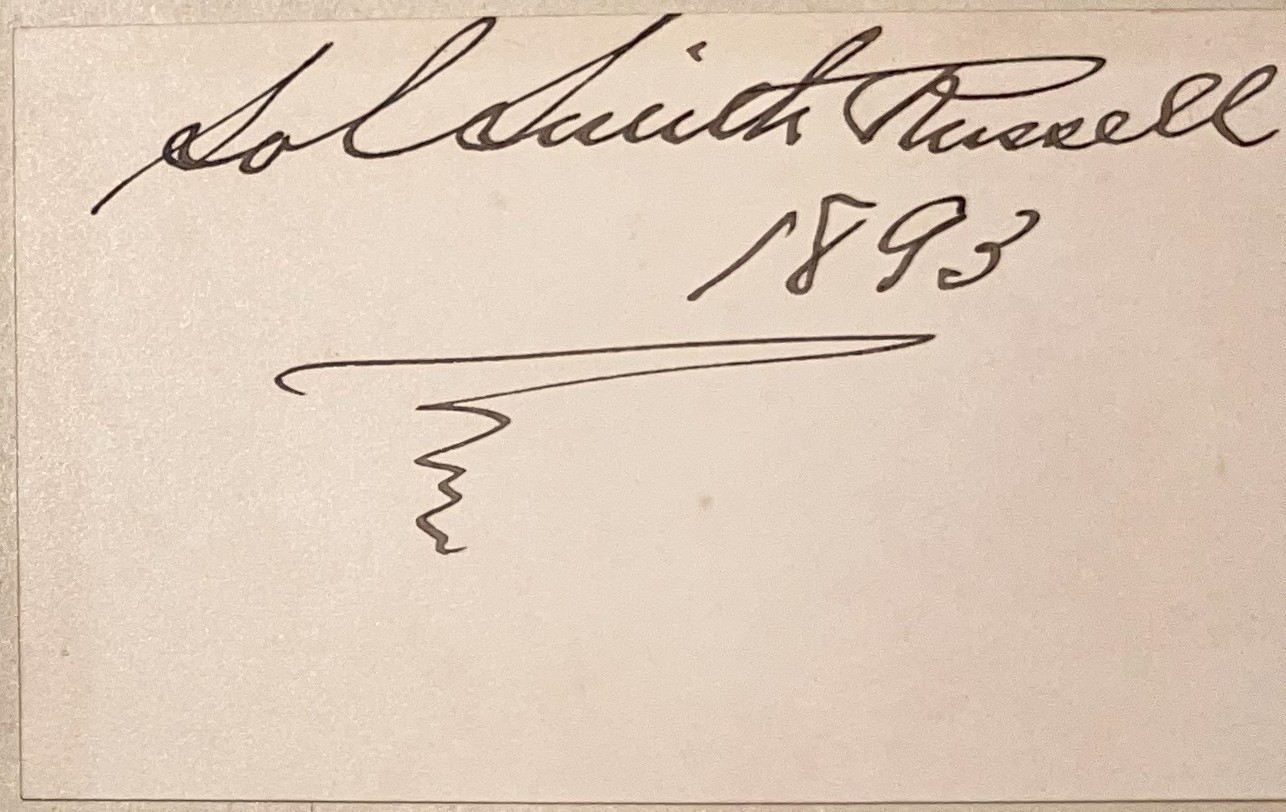 Sol Smith Russell
1893